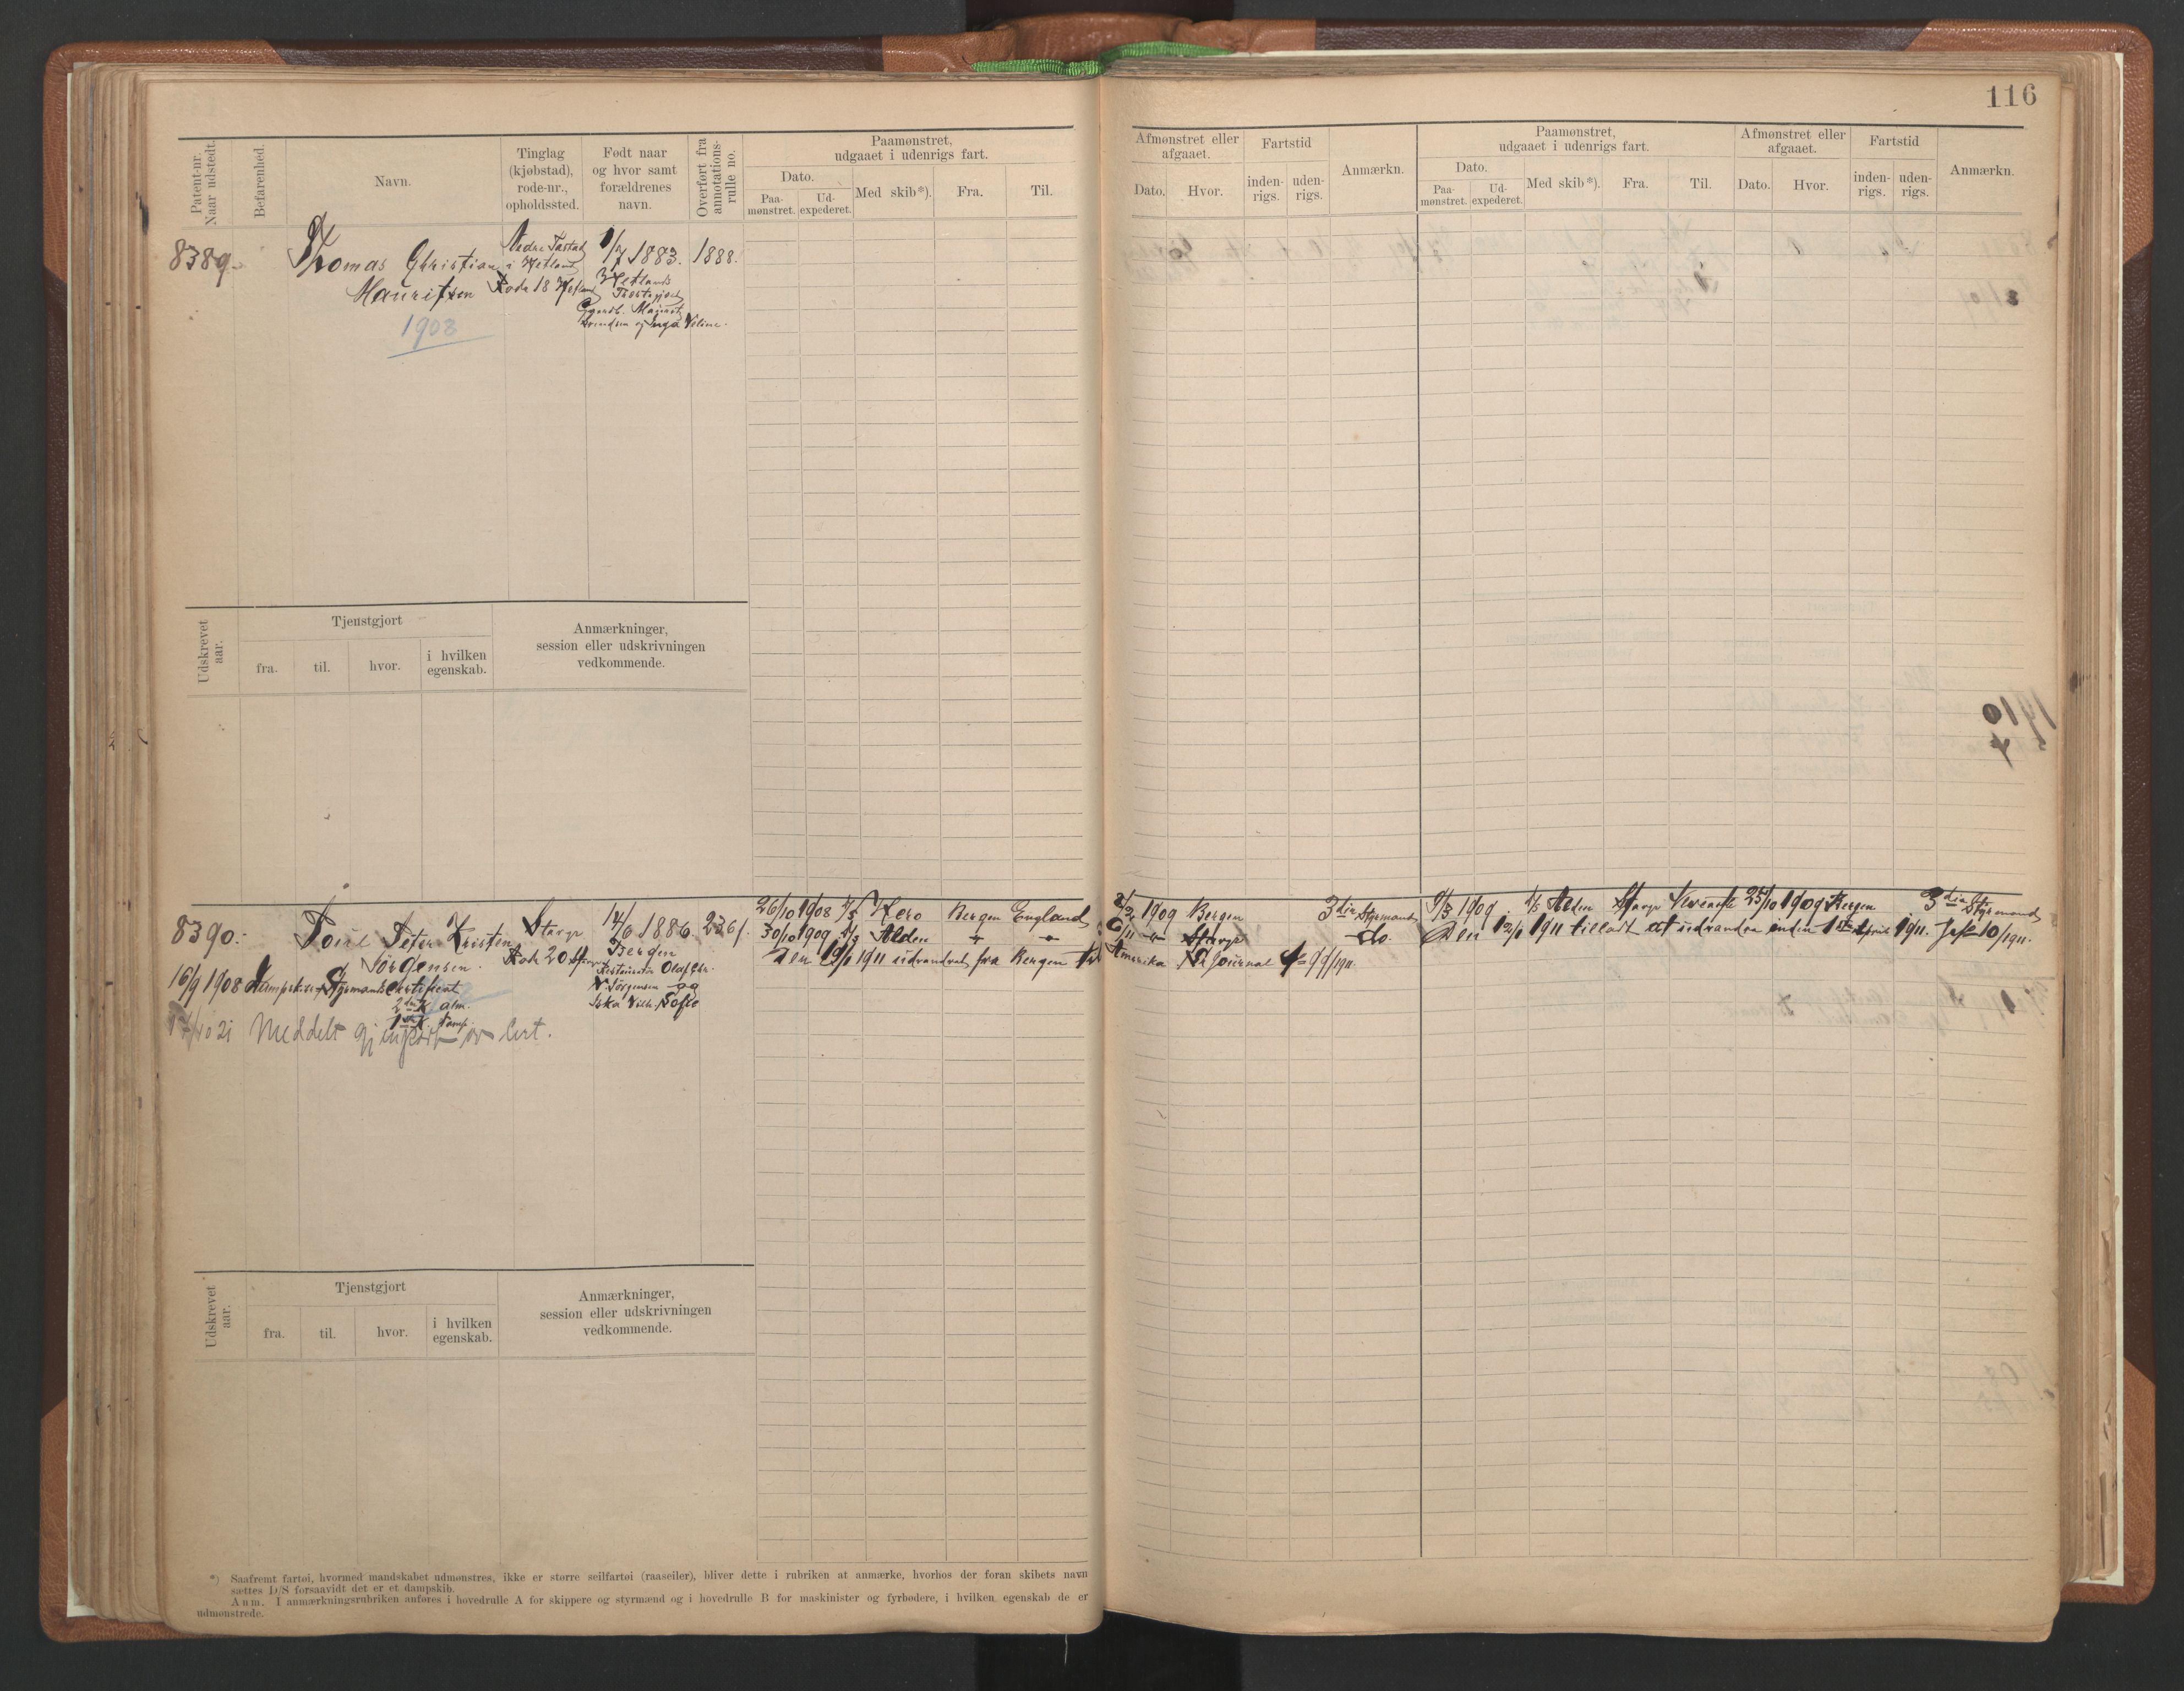 116
Patent-nr.
Naar udstedt.
Befarenhed.
Navn.
Tinglag
(kjøbstad),
rode-nr.,
opholdssted.
Født naar
og hvor samt
forældrenes
navn.
Overført fra
annotations-
rulle no.
Paamønstret,
udgaaet i udenrigs fart.
Dato.
Paa-
mønstret.
Ud-
expederet.
Med skib*).
Fra.
Til.
Afmønstret eller
afgaaet.
Dato.
Hvor.
Fartstid
inden-
rigs.
uden-
rigs.
Anmærkn.
Paamønstret,
udgaaet i udenrigs fart.
Dato.
Paa-
mønstret.
Ud-
expederet.
Med skib*).
Fra.
Til.
Afmønstret eller
afgaaet.
Dato.
Hvor.
Fartstid
inden-
rigs.
uden-
rigs.
Anmærkn.
8389.
Thomas Christian
Mauritsen
1908
Nedre Tastad
i Hetland
Rode 18 Hetland
1/7 1883.
Hetlands
Mauritz
og Inga Veline.
1888.
Udskrevet
aar.
Tjenstgjort
fra.
til.
hvor.
i hvilken
egenskab.
Anmærkninger,
session eller udskrivningen
vedkommende.
8390.
Poul Peter Kristen
Jörgensen.
Stavgr
Rode 20 Stavgr
14/6 1886.
Bergen
Olaf Chr.
Jörgensen og
Vilh. Sofie
2261.
16/9 1908 Dampsk. Styrmands Certificat
2den K alm.
1ste K Damp
21 Meddelt gjenpart av Cert.
26/10 1908 D/S Hero Bergen England
30/10 1909 D/S Alden " "
Den 19/1 1911 udvandret fra Bergen til
1909 Bergen 3die Styrmand
6/11 " Stavgr do.
Amerika Journal 99/1911.
9/3 1909 D/S Alden Stavgr 25/10 1909 Bergen 3die Styrmand
Den 12/1 1911 tilladt at udvandre inden 1ste April 1911. 10/1911.
Udskrevet
aar.
Tjenstgjort
fra.
til.
hvor.
i hvilken
egenskab.
Anmærkninger,
session eller udskrivningen
vedkommende.
*) Saafremt fartøi, hvormed mandskabet udmønstres, ikke er større seilfartøi (raaseiler), bliver dette i rubriken at anmærke, hvorhos der foran skibets navn
sættes D/S forsaavidt det er et dampskib.
Anm. I anmærkningsrubriken anføres i hovedrulle A for skippere og styrmænd og i hovedrulle B for maskinister og fyrbødere, i hvilken egenskab de er
udmønstrede.